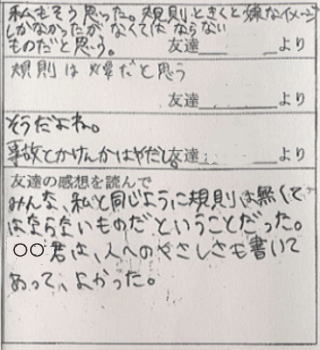 私もそう思った。規則ときくと嫌なイメージ
しかなかったが、なくてはならない
ものだと思う。 友達 より
規則は必要だと思う
友達 より
そうだよね。
事故とかけんかはやだし。 友達 より
友達の感想を読んで
みんな、私と同じように規則は無くて
はならないものだということだった。
○○君は、人へのやさしさも書いて
あって、よかった。